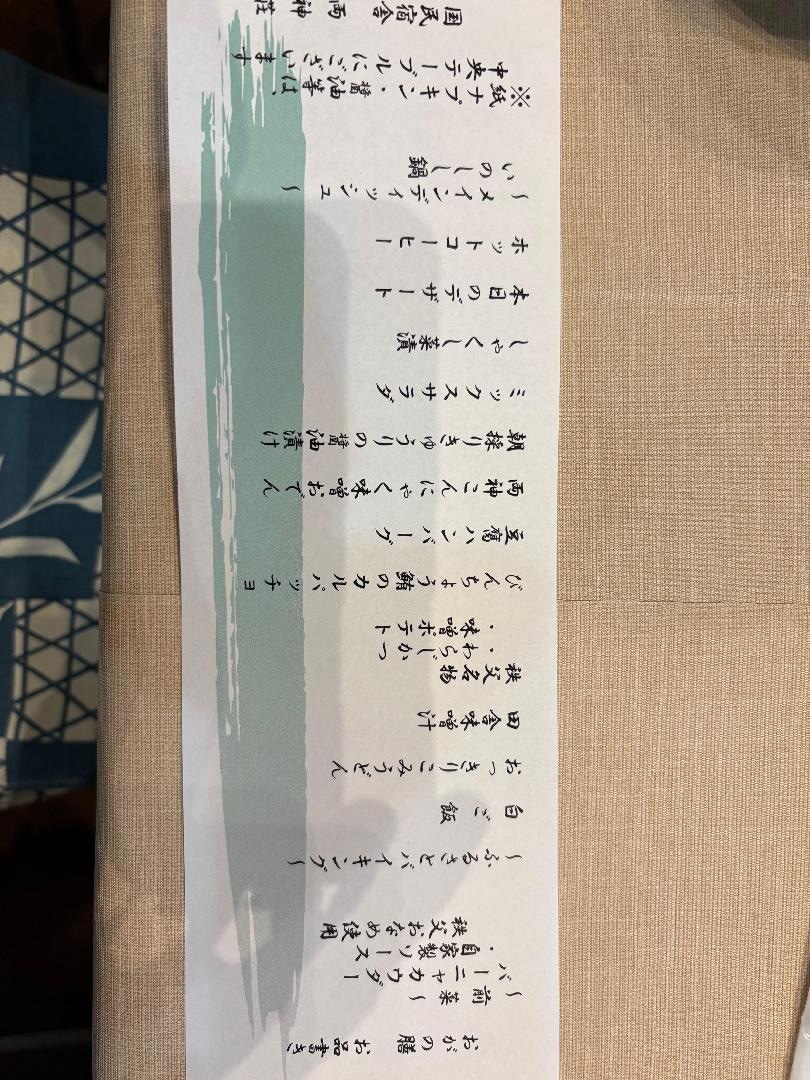 おがの膳　お品書き
～前菜～
バーニャカウダー
・自家製ソース
秩父おなめ使用
～ふるさとバイキング～
白ご飯
おっきりこみうどん
田舎味噌汁
秩父名物
・わらじかつ
・味噌ポテト
びんちょう鮪のカルパッチョ
豆腐ハンバーグ
両神こんにゃく味噌おでん
朝採りきゅうりの醤油漬け
ミックスサラダ
しゃくし菜漬
本日のデザート
ホットコーヒー
～メインディッシュ～
いのしし鍋
※紙ナプキン・醤油等は、
中央テーブルにございます
国民宿舎　両神荘